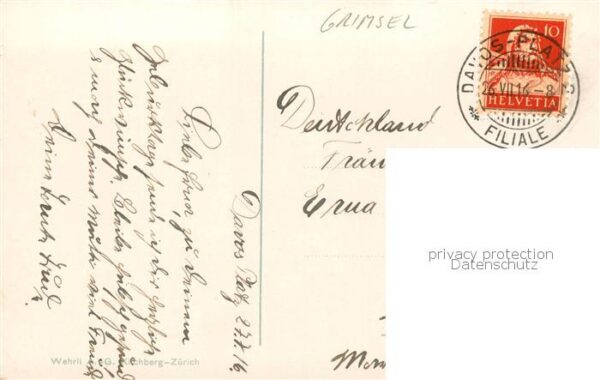 GRIMSEL
10
HELVETIA
DAVOS-PLATZ 2
26.VII.16.-8
FILIALE
Davos Platz 27.7.16.
Liebe Erna, zu Deinem
Geburtstage sende ich Dir herzliche
Glückwünsche. Bleibe recht gesund
& mach Deiner Mutti viel Freude
Deine
Deutschland
Erna
privacy protection
Datenschutz
Wehrli A.-G. Kilchberg-Zürich